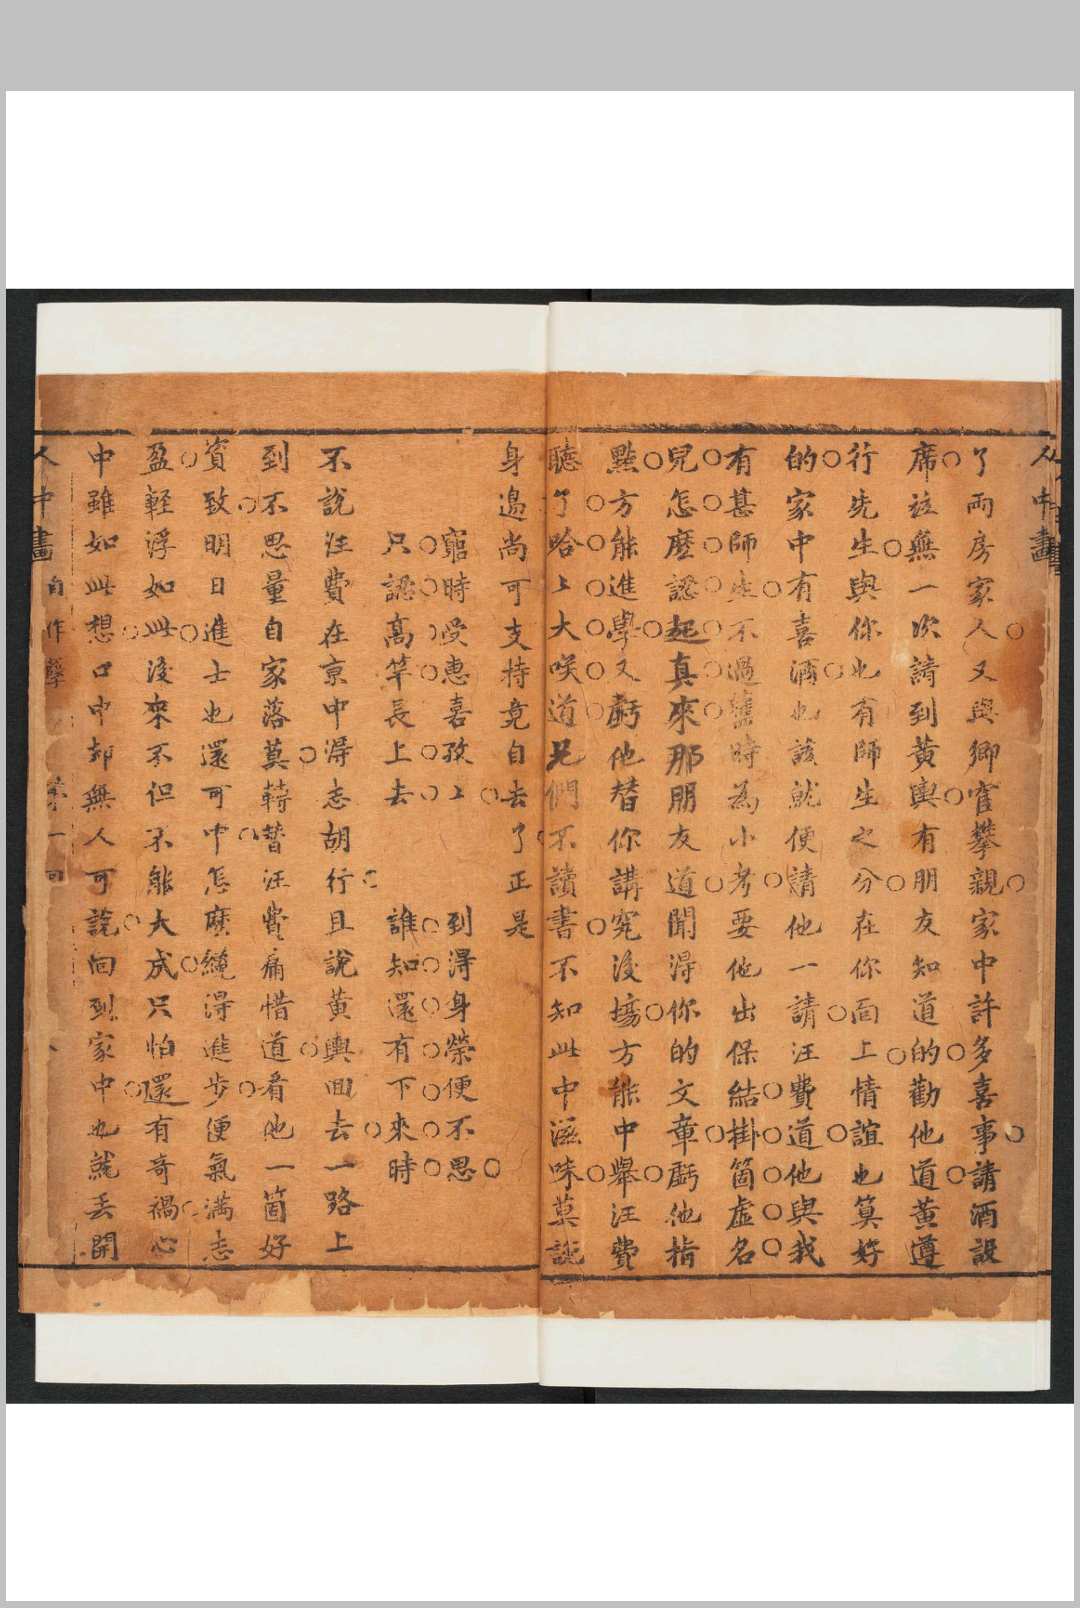 人中畫
了兩房家人又與鄉宦攀親家中許多喜事請酒設
席並無一次請到黃輿有朋友知道的勸他道黃遵
行先生與你也有師生之分在你面上情誼也算好
的家中有喜酒也該就便請他一請汪費道他與我
有甚師生不過舊時為小考要他出保結掛箇虛名
兒怎麼認起真來那朋友道聞得你的文章虧他指
點方能進學又虧他替你講究後場方能中舉汪費
聽了哈〻大咲道兄們不讀書不知此中滋味莫說
身邉尚可支持竟自去了正是
窮時受惠喜孜〻 到得身榮便不思
只認高竿長上去 誰知還有下來時
不說汪費在京中得志胡行且說黃輿回去一路上
到不思量自家落莫轉替汪費痛惜道看他一箇好
資致明日進士也還可中怎麼纔得進步便氣滿志
盈輕浮如此後來不但不能大成只怕還有奇禍心
中雖如此想口中却無人可說回到家中也就丟開
人中畫 自作孽